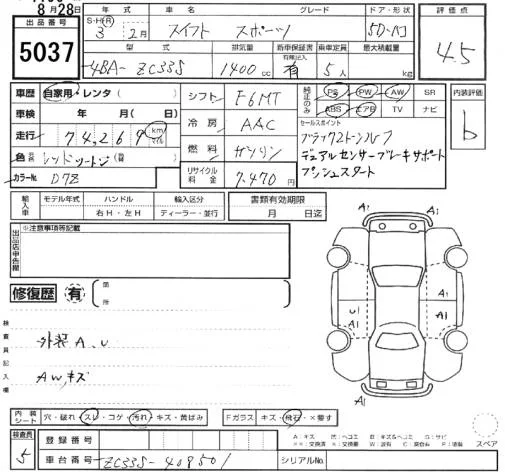 8月28日
出品番号
5037
年 式 車 名 グレード ドア・形状
S・H・R 3年 2月 スイフト スポーツ 5D-ハ
型 式 排気量 新車保証書 乗車定員 最大積載量
有無記入
4BA-ZC33S 1400cc 有 5人 kg
評価点
4.5
車歴 自家用・レンタ( )
車検 年 月( 日)
走行 74,269 km マイル
色 元色 レッドツートン (替 )
カラーNo. D7Z
シフト F6MT
冷房 AAC
燃料 ガソリン
リサイクル料金 7,470円
純正のみ PS PW AW SR
ABS エアB TV ナビ
セールスポイント
ブラック2トンルーフ
デュアルセンサーブレーキサポート
プッシュスタート
内装評価
b
輸入車 モデル年式 ハンドル 輸入区分
右H・左H ディーラー・並行
書類有効期限
月 日迄
出品店申告欄
※注意事項等記載
修復歴 有 (箇所
検査員記入欄
外装 A、U
AW、キズ
A1 A1
A1
U A1
A1
A1
内装シート 穴・破れ・スレ・コゲ・汚れ・キズ・黄ばみ
Fガラス キズ・飛石・×要す
スペア
検査員
5
登録番号
車台番号 ZC33S-408501
シリアルNo.